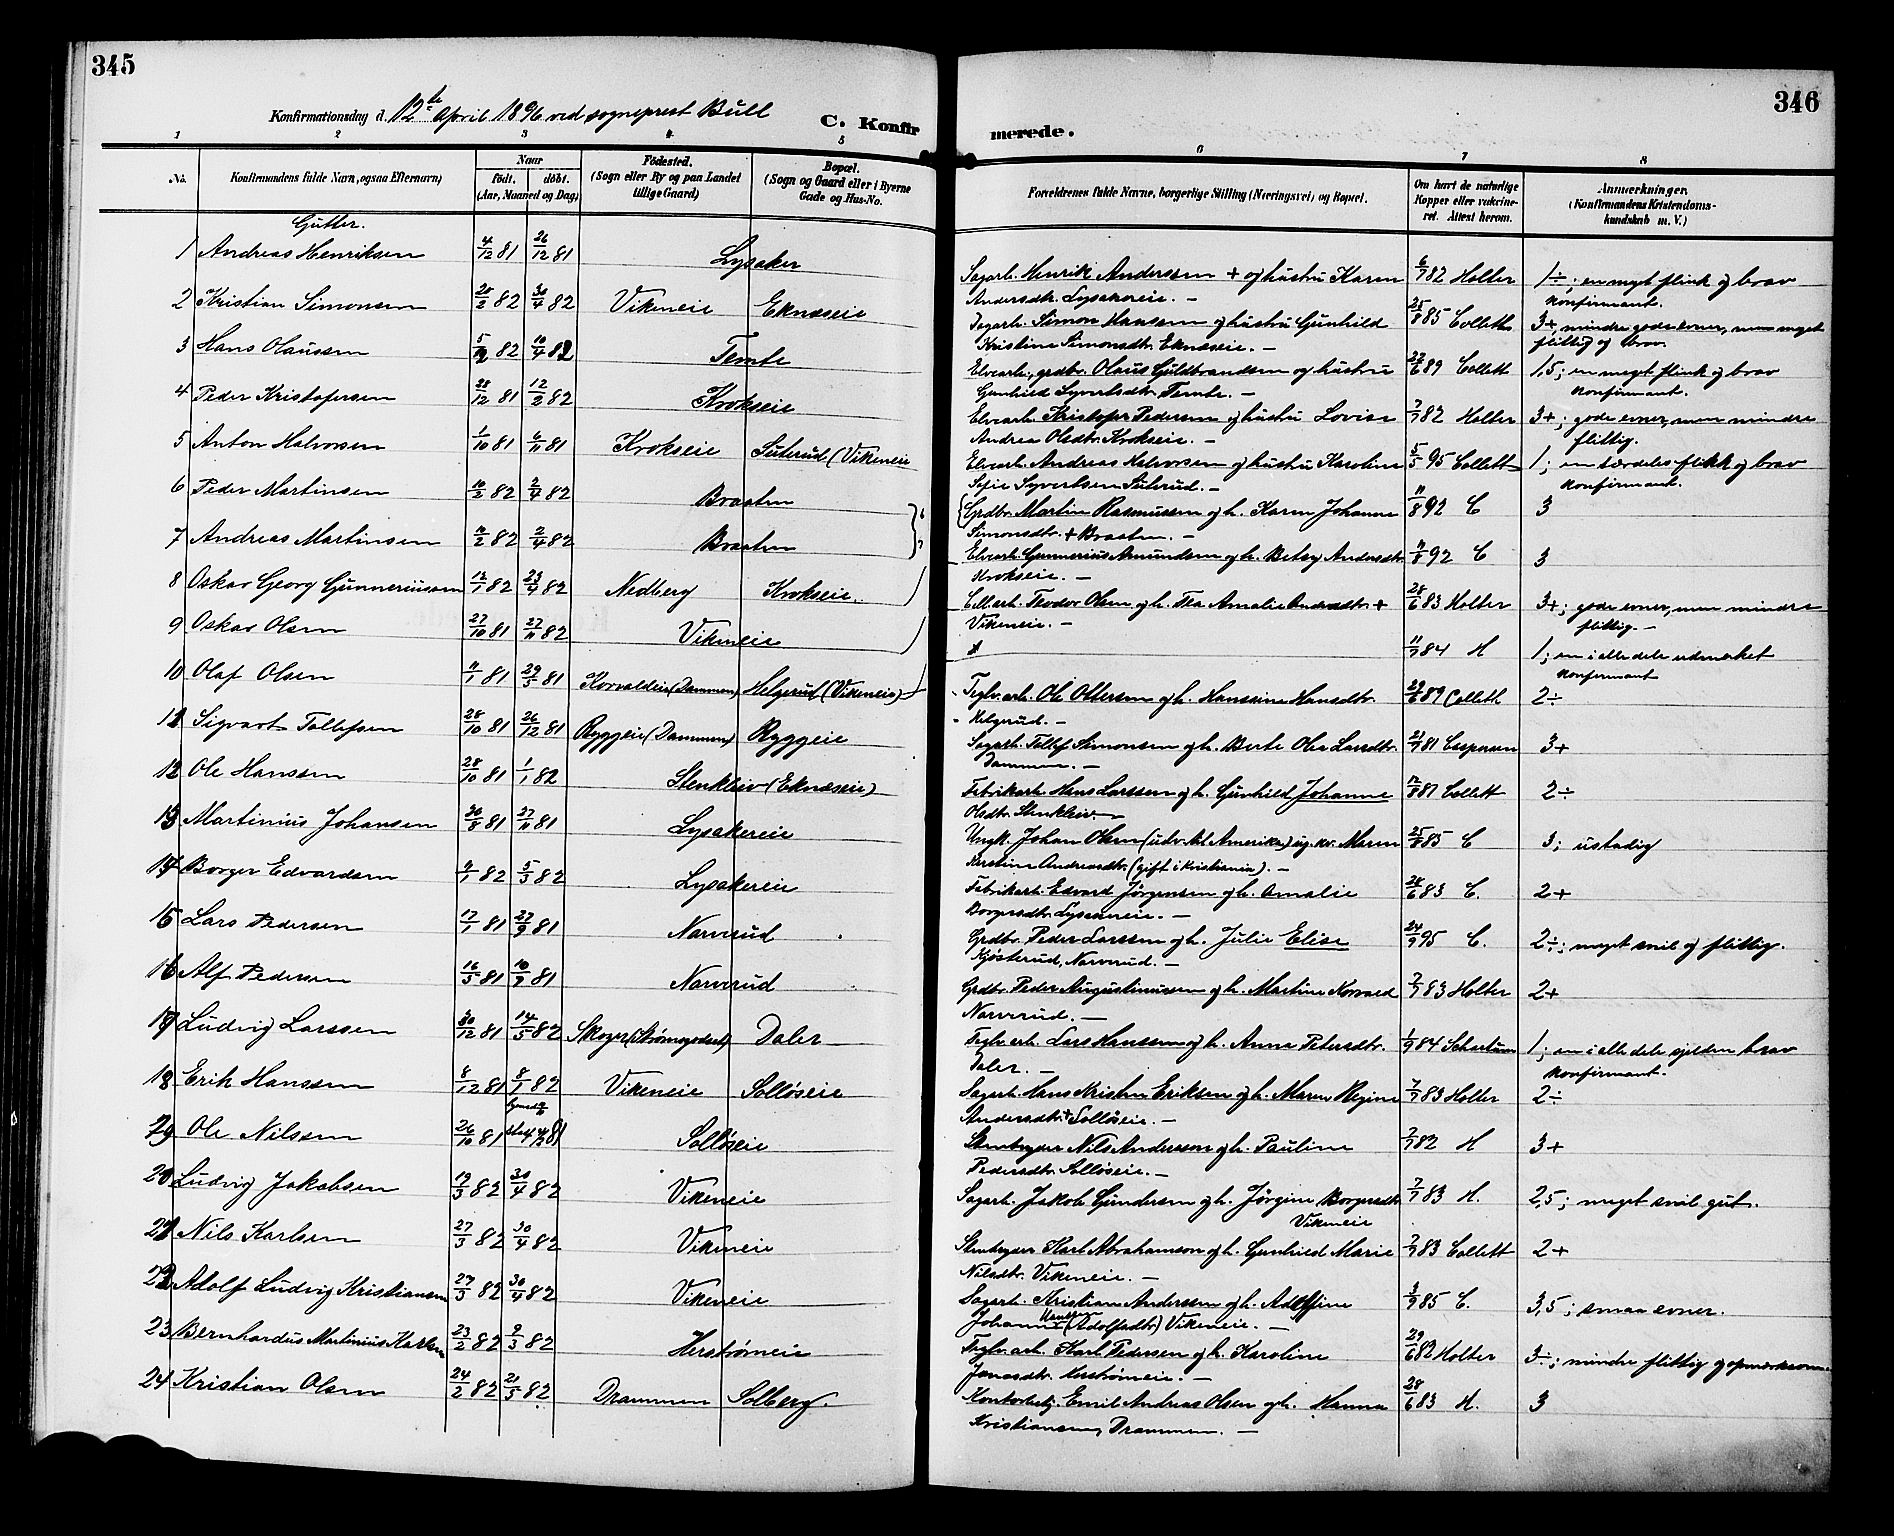 345
Konfirmationsdag d. 12te April 1896 ved sogneprest Bull
C. Konfir
1 2 3 4 5
No.
Konfirmandens fulde Navn, ogsaa Efternavn)
Naar
födt. döbt.
(Aar, Maaned og Dag)
Födested.
(Sogn eller By og paa Landet
tillige Gaard)
Bopæl.
(Sogn og Gaard eller i Byerne
Gade og Hus-No.
Gutter.
1 Andreas Henriksen 4/12 81 26/12 81 Lysaker
2 Kristian Simonsen 28/2 82 30/4 82 Vikeneie Eknæseie
3 Hans Olaussen 82 10/4 82 Temte
4 Peder Kristofersen 28/12 81 12/2 82 Krokseie
5 Anton Halvorsen 1/10 81 6/11 81 Krokseie Suterud (Vikeneie
6 Peder Martinsen 10/2 82 2/4 82 Braaten
7 Andreas Martinsen 82 2/4 82 Braaten
8 Oskar Georg Gunneriussen 12/1 82 23/4 82 Nedberg Krokseie
9 Oskar Olsen 27/10 81 27/11 82 Vikeneie
10 Olaf Olsen 81 29/5 81 Korvaldeie (Dammen) Helgerud (Vikeneie)
11 Sigvart Tollefsen 28/10 81 26/12 81 Ryggeie (Dammen) Ryggeie
12 Ole Hanssen 28/10 81 1/1 82 Stenkleiv (Eknæseie)
13 Martinius Johansen 30/8 81 27/11 81 Lysakereie
14 Borger Edvardsen 82 5/3 82 Lysakereie
15 Lars Pedersen 17/1 81 81 Narverud
16 Alf Pedersen 16/5 81 81 Narverud
17 Ludvig Larssen 30/12 81 14/5 82 Skoger (Strømsgodset) Daler
18 Erik Hanssen 8/12 81 8/1 82 Vikeneie Solløseie
19 Ole Nilssen 26/10 81 Solløseie
20 Ludvig Jakobsen 17/3 82 30/4 82 Vikeneie
21 Nils Karlsen 27/3 82 30/4 82 Vikeneie
22 Adolf Ludvig Kristiansen 27/3 82 30/4 82 Vikeneie
23 Bernhardus Martinius Karlsen 23/2 82 9/3 82 Herstrømeie
24 Kristian Olsen 24/2 82 21/5 82 Drammen Solberg
346
merede.
6 7 8
Forældrenes fulde Navne, borgerlige Stilling (Næringsvei) og Bopæl.
Om havt de naturlige
Kopper eller vakcine-
ret. Attest herom.
Anmærkninger.
(Konfirmandens Kristendoms-
kundskab m. V.)
Sagarb. Henrik Anderssen + og hustru Karen 6/7 82 Holter 1÷; en meget flink og brav
Andersdtr. Lysakereie. — konfirmant.
Dagarb. Simon Hanssen og hustru Gunhild 25/8 85 Collett 3+, mindre gode evner, men meget
Kristine Simonsdtr. Eknæseie. — flittig og brav
Elvearb., grdbr. Olaus Guldbrandsen og hustru 89 Collett 1,5; en meget flink og brav
Gunhild Syvertsdtr. Temte. — konfirmant.
Elvearb. Kristofer Pedersen og hustru Lovise 7/7 82 Holter 3+; gode evner, men mindre
Andrea Olsdtr. Krokseie. — flittig.
Elvearb. Andreas Halvorsen og hustru Karoline 5/5 95 Collett 1; en særdeles flink og brav
Sofie Syvertsen Suterud. — konfirmant.
Grdbr. Martin Rasmussen og h. Karen Johanne 11/8 92 C 3
Simonsdtr. + Braaten. —
Elvearb. Gunnerius Amundsen og h. Betsy Andersdtr. 11/8 92 C 3
Krokseie. —
Cell.arb. Teodor Olsen og h. Tea Amalie Andersdtr. + 28/6 83 Holter 3+; gode evner, men mindre
Vikeneie. — flittig. —
11/7 84 H 1; en i alle dele udmerket
konfirmant
Teglv.arb. Ole Ottersen og h. Hanssine Hansdtr. 89 Collett 2÷
Helgerud. —
Sagarb. Tollef Simonsen og h. Berte Olea Larsdtr. 81 Caspersen 3+
Dammen. —
Fabrikarb. Hans Larssen og h. Gunhild Johanne 87 Collett 2÷
Olsdtr. Stenkleiv. —
Ungk. Johan Olsen (udv. til Amerika) ug. kv. Maren 25/8 85 C 3; ustadig
Kirstine Andreasdtr. (gift i Kristiania). —
Fabrikarb. Edvard Jørgensen og h. Amalie 28/6 83 C. 2+
Borgersdtr. Lysakereie. —
Grdbr. Peder Larssen og h. Julie Elise 24/9 95 C. 2÷; meget snil og flittig.
Kjøsterud, Narverud. —
Grdbr. Peder Augustinussen og h. Martine Korvald 7/7 83 Holter 2+
Narverud. —
Teglv.arb. Lars Hanssen og h. Anna Petersdtr. 1/9 84 Schartum 1; en i alle dele sjelden brav
Daler. — konfirmant.
Sagarb. Hans Kristen Eriksen og h. Maren Regine 7/7 83 Holter 2÷
Andersdtr. + Solløseie. —
Stenbryder Nils Anderssen og h. Pauline 7/7 82 H 3+
Pedersdtr. Solløseie. —
Sagarb. Jakob Gundersen og h. Jørgine Borgersdtr. 7/7 83 H. 2,5; meget snil gut.
Vikeneie
Stenbryder Karl Abrahamson og h. Gunhild Marie 7/7 83 Collett 2+
Nilsdtr. Vikeneie. —
Sagarb. Kristian Anderssen og h. Adolfine 85 C. 3,5; smaa evner.
Johanne Hanssen (Adolfsdtr.) Vikeneie. —
Teglv.arb. Karl Pedersen og h. Karoline 29/6 82 Holter 3÷; mindre flittig og opmærksom
Jonasdtr. Herstrømeie. —
Kontorbetj. Emil Andreas Olsen og h. Hanna 28/6 83 H. 3
Kristiansen, Drammen. —